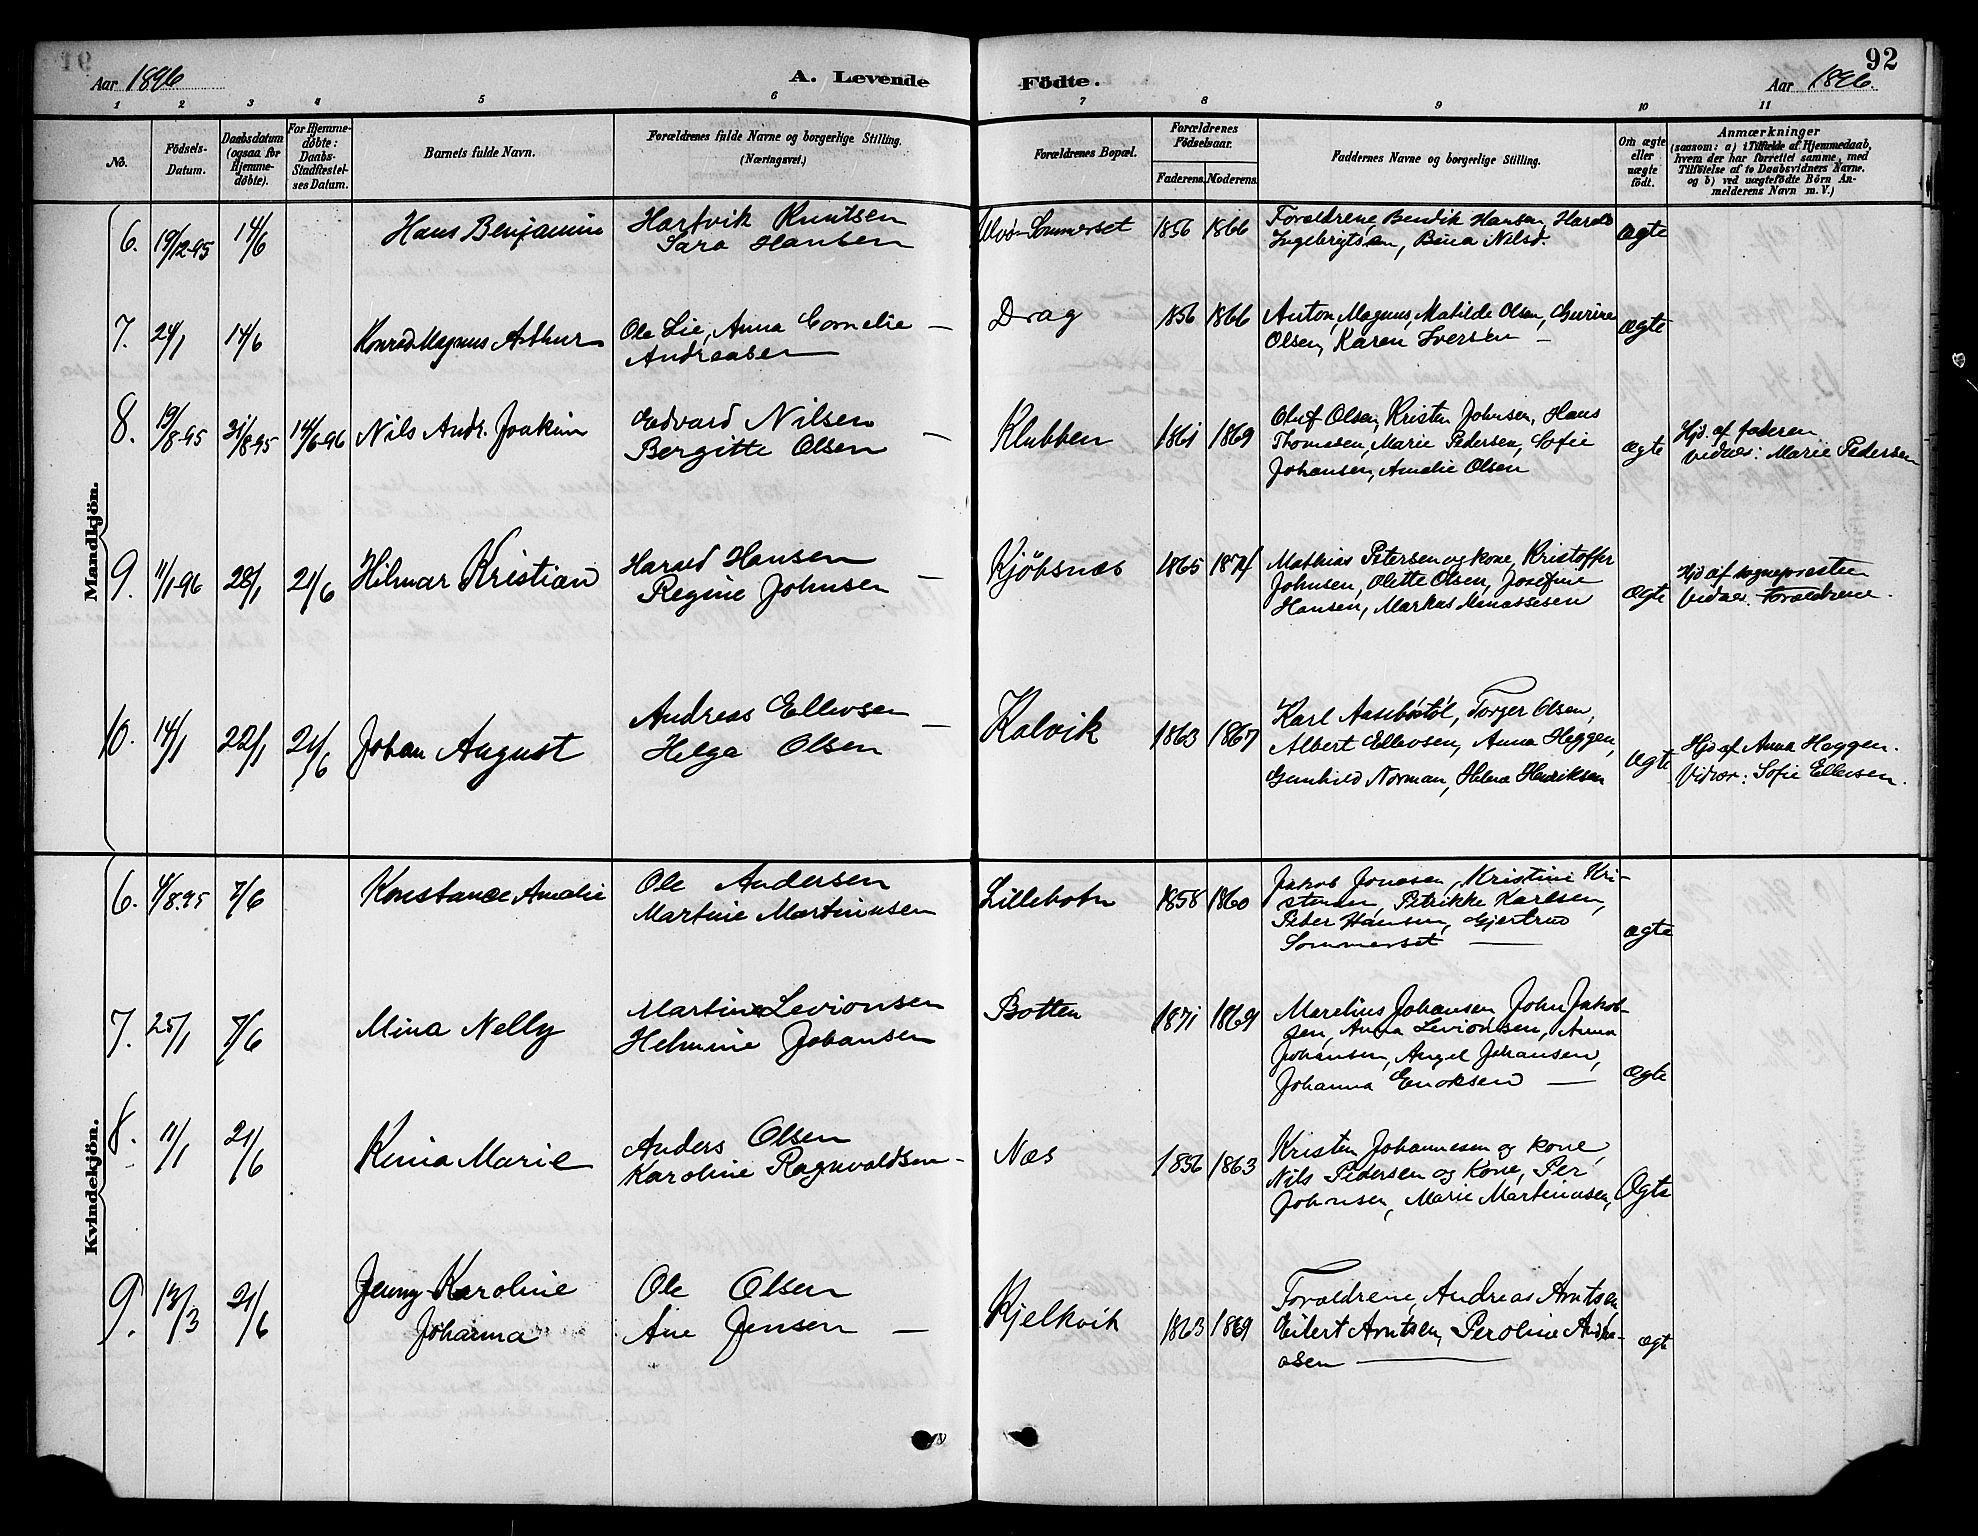 92
Aar 1896
A. Levende
Födte.
Aar 1896.
1 2 3 4 5 6 7 8 9 10 11
No.
Födsels-
Datum.
Daabsdatum
(ogsaa for
Hjemme-
döbte).
For Hjemme-
döbte:
Daabs-
Stadfæstel-
ses Datum.
Barnets fulde Navn.
Forældrenes fulde Navne og borgerlige Stilling.
(Næringsvei.)
Forældrenes Bopæl.
Forældrenes
Födselsaar.
Faderens. Moderens.
Faddernes Navne og borgerlige Stilling.
Om ægte
eller
uægte
født.
Anmærkninger
(saasom: a) i Tilfælde af Hjemmedaab,
hvem der har forrettet samme, med
Tilföielse af to Daabsvidners Navne,
og b) ved uægtefödte Börn An-
melderens Navn m. V.)
Mandkjön.
6. 19/12-95 14/6 Hans Benjamin
Hartvik Knutsen
Sara Hansen
Sommerset 1856 1866
Forældrene, Bendik Hansen, Harald
Ingebrigtsen, Bina Nilsd.
Ægte
7. 24/1 14/6 Konrad Magnus Arthur
Ole Lie, Anna Cornelie –
Andreasen
Drag 1856 1866
Anton, Magnus, Matilde Olsen,
Olsen, Karen Iversen –
Ægte
8. 19/8-95 31/8-95 14/6-96 Nils Andr. Joakim
Edvard Nilsen
Bergitte Olsen –
Klubben 1861 1869
Oluf Olsen, Kristen Johnsen, Hans
Thomasen, Marie Pedersen, Sofie
Johansen, Amalie Olsen
Ægte
Hjd. af faderen
Vidner: Marie Pedersen
9. 11/1-96 28/1 21/6 Hilmar Kristian
Harald Hansen
Regine Johnsen –
Kjöbsnæs 1865 1874
Mathias Petersen og kone, Kristoffer
Johnsen, Olette Olsen, Josefine
Hansen, Markus Manassesen
Ægte
Hjd af sognepresten
Vidner: Forældrene.
10. 14/1 22/1 21/6 Johan August
Andreas Ellevsen –
Helga Olsen
Kalvik 1863 1867
Karl Aasebøstøl, Torger Olsen,
Albert Ellevsen, Anna Heggen,
Gunhild Norman, Helena Henriksen
Ægte
Hjd af Anna Heggen.
Vidner: Sofie Ellevsen.
Kvindekjön.
6. 4/8.95 7/6 Konstance Amalie
Ole Andersen
Martine Martinusen
Lillebotn 1858 1860
Jakob Jonasen, Kristine Kri-
stensen, Petrikke Karlsen,
Peder Hansen, Gjertrud
Sommerset –
Ægte
7. 25/1 7/6 Mina Nelly
Martin Levionsen
Helmine Johansen
Botten 1871 1869
Marelius Johansen, John Jakob-
sen, Anna Levionsen, Anna
Johansen, Angel Johansen,
Johanna Enoksen –
Ægte
8. 11/1 21/6 Marie
Anders Olsen
Karoline Ragnvaldsen –
Næs 1856 1863
Kristen Johannesen og kone,
Nils Pedersen og Kone, Per
Johnsen, Marie Martinusen,
Ægte
9. 13/3 21/6 Jenny Karoline
Johanna
Ole Olsen
Ane Jensen –
Kjelkvik 1863 1869
Forældrene, Andreas Arntsen
Eilert Arntsen, Peroline Andre-
asen –
ægt